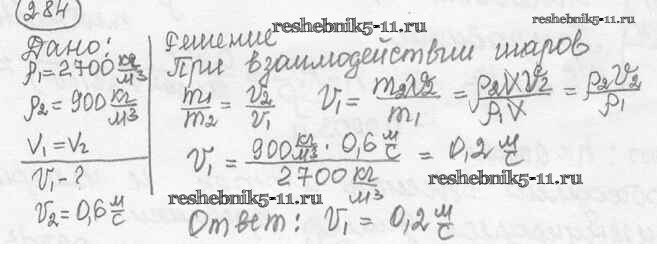 284
reshebnik5-11.ru
reshebnik5-11.ru
Дано:
ρ₁=2700 кг/м³
ρ₂=900 кг/м³
V₁=V₂
v₁-?
v₂=0,6 м/с
Решение
При взаимодействии шаров
m₁/m₂ = v₂/v₁ v₁ = m₂v₂/m₁ = ρ₂Vv₂/ρ₁V = ρ₂v₂/ρ₁
v₁ = 900 кг/м³ · 0,6 м/с / 2700 кг/м³ = 0,2 м/с
reshebnik5-11.ru
reshebnik5-11.ru
Ответ: v₁ = 0,2 м/с